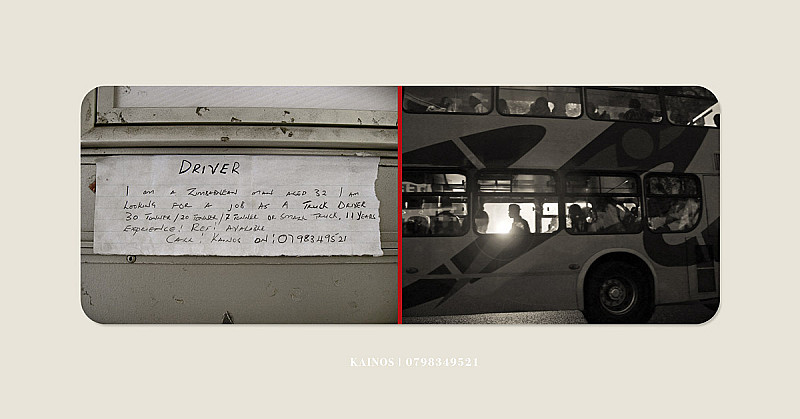 DRIVER
I AM A ZIMBABWEAN MAN AGED 32 I AM
LOOKING FOR A JOB AS A TRUCK DRIVER
30 TONNER/20 TONNER/7 TONNER OR SMALL TRUCK, 11 YEARS
EXPERIENCE! REF! AVALIBLE
CALL! KAINOS ON! 0798349521
KAINOS | 0798349521